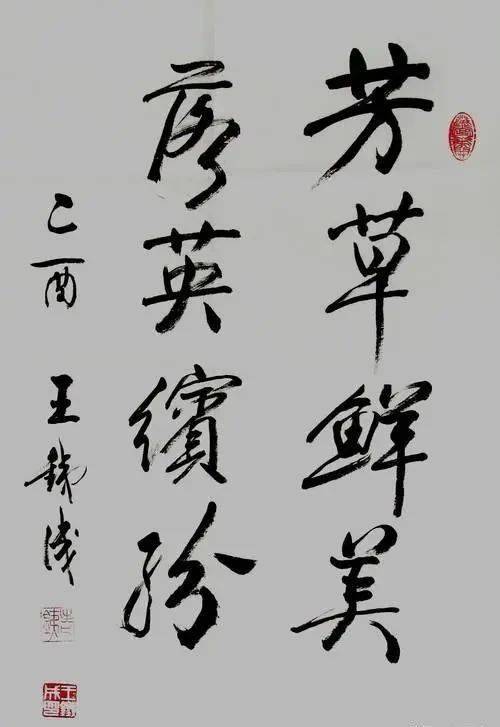 芳草鲜美
落英缤纷
乙酉 王铁成